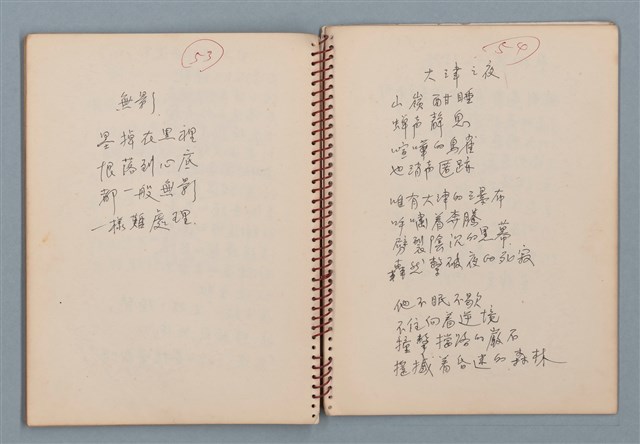 53
無影
墨掉在黑裡
恨落到心底
都一般無影
一樣難處理
54
大津之夜
山嶺酣睡
蟬声靜息
喧嘩的鳥雀
也消声匿跡
唯有大津的三瀑布
呼嘯着奔騰
劈裂陰沉的黑幕
轟然擊破夜的死寂
他不眠不歇
不住向着逆境
撞擊擋路的巖石
搖撼着昏迷的森林